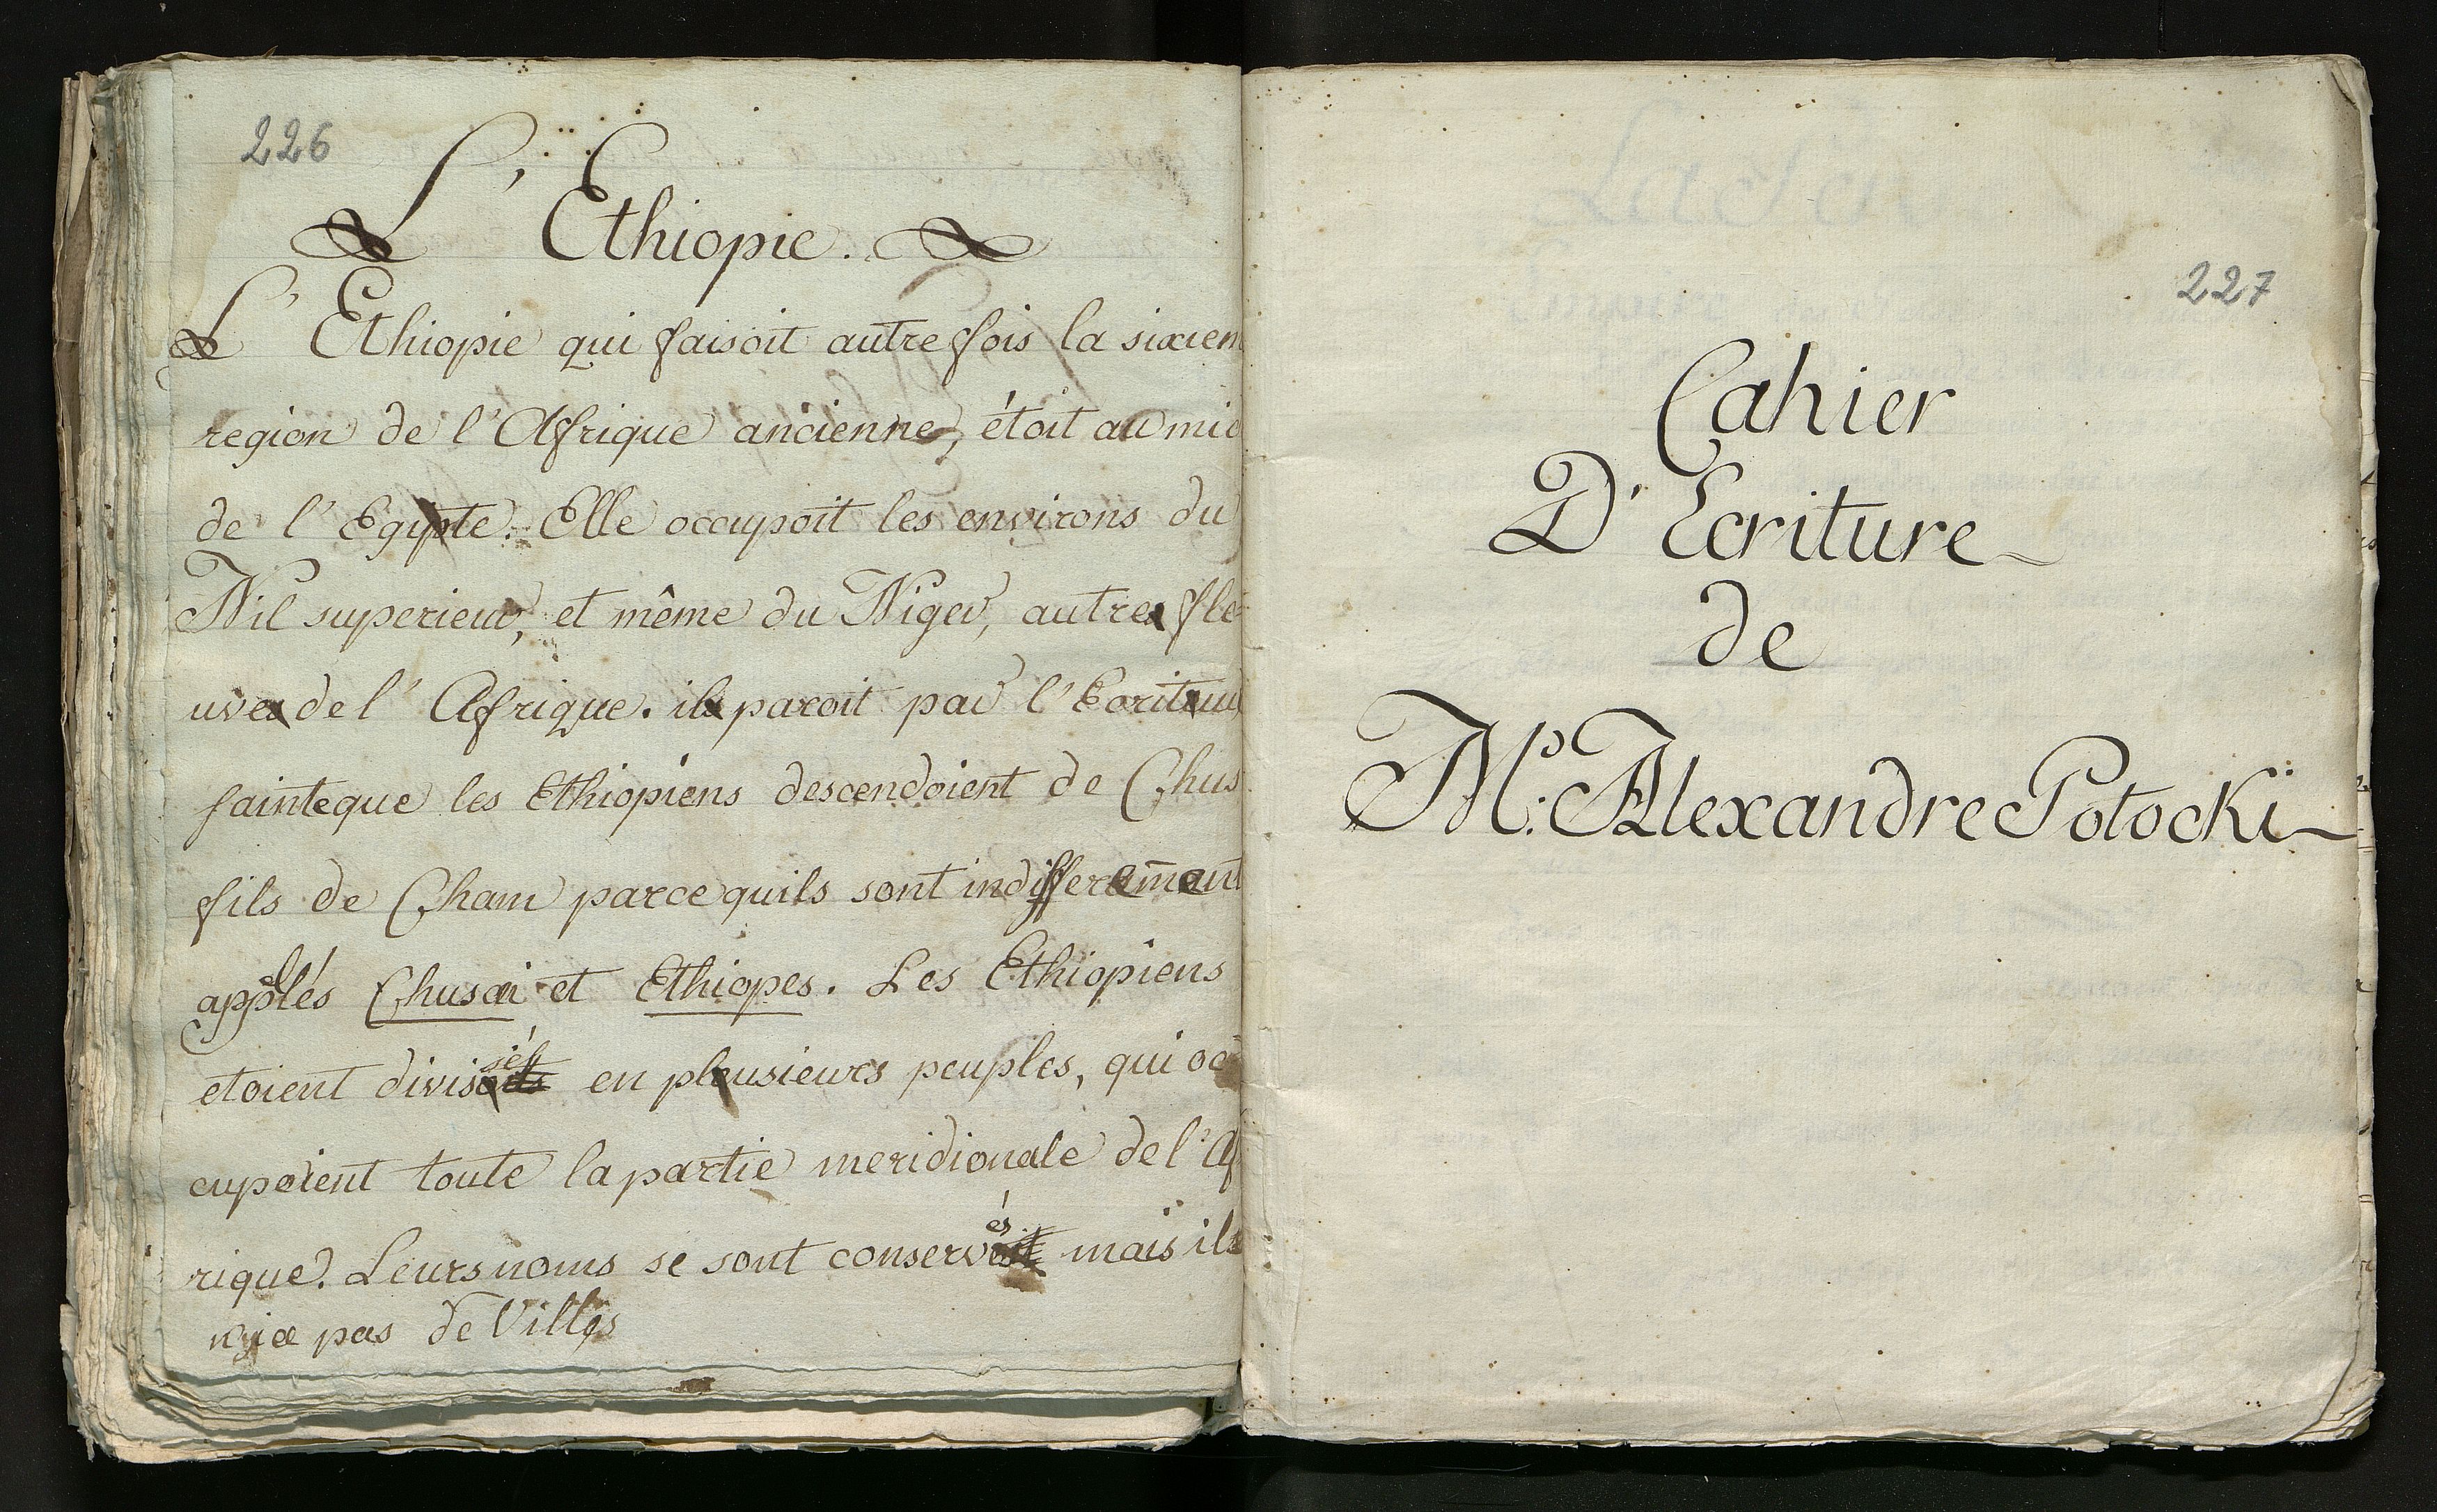 226
L' Ethiopie.
L' Ethiopie qui faisoit autre fois la sixiem
region de l' Afrique ancienne, étoit au mid
de l' Egipte. Elle occupoit les environs du
Nil superieur, et même du Niger, autre fle
uve de l' Afrique. il paroit par l' Ecriture
sainte que les Ethiopiens descendoient de Chus
fils de Cham parce quils sont indifferement
appellés Chusai et Ethiopes. Les Ethiopiens
etoient divisés en plusieurs peuples, qui oc
cupoient toute la partie meridionale de l' Af
rique. Leurs noms se sont conservés mais ils
pas de Villes
227
Cahier
D' Ecriture
de
Mr. Alexandre Potocki